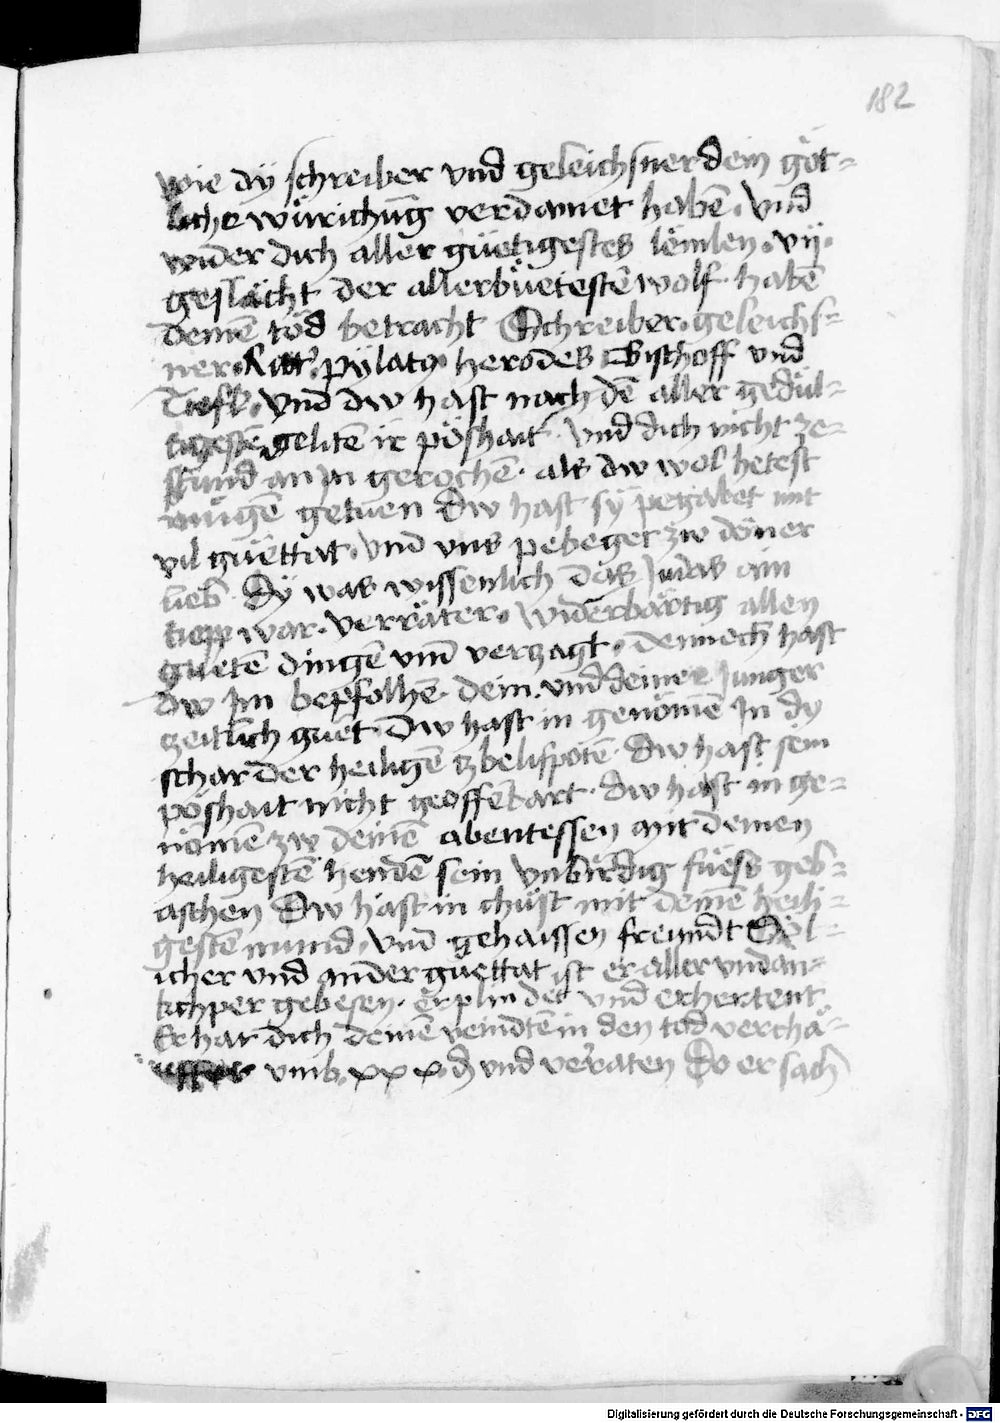 182
wie dÿ schreiber vnd geleichsner dein göt-
liche würichūg verdamet habē. Vnd
wider dich aller güetigestes lömlen. vij.
geslächt der allerbüetestē wolf. haben
deinē töd betracht Schreiber. geleichs-
ner. Ritt'. pylatꝰ. herodes Bischoff vnd
Tiefl. Vnd dw hast nach dē aller gedül-
tigestē gelitē ir pöshait. Vnd dich nicht ze-
stund an jn gerochē. als dw wol hetest
mügē getuen Dw hast sÿ pegabet mit
vil güettat. Vnd vns pebeget zw döner
lieb. Dÿ was wissenlich das Judas ain
tiepp war. verräter. widerbärtig allen
guetē dingē vnd verzagt. dennech hast
dw Im bepfolhē. dein. vnd deiner Junger
zeitlich guet. Dw hast in genömē In dy
schar der heiligē zbelifpotē. dw hast sein
pöshait nicht geoffēbart. dw hast in ge-
nömē. zw deinē abentessen mit deinen
heiligestē hendē sein vnbirdig füess geb-
aschen Dw hast in chüst mit deinē heili-
gestē mund. vnd gehaissen freundt Söl-
icher vnd ander guettat ist er aller vndan-
kchper gebesen. Erplindet vnd erhertent.
Er hat dich deinē veindtē in den tod verchä-
uffet vmb. xxx. d vnd verraten Do er sach
Digitalisierung gefördert durch die Deutsche Forschungsgemeinschaft - DFG